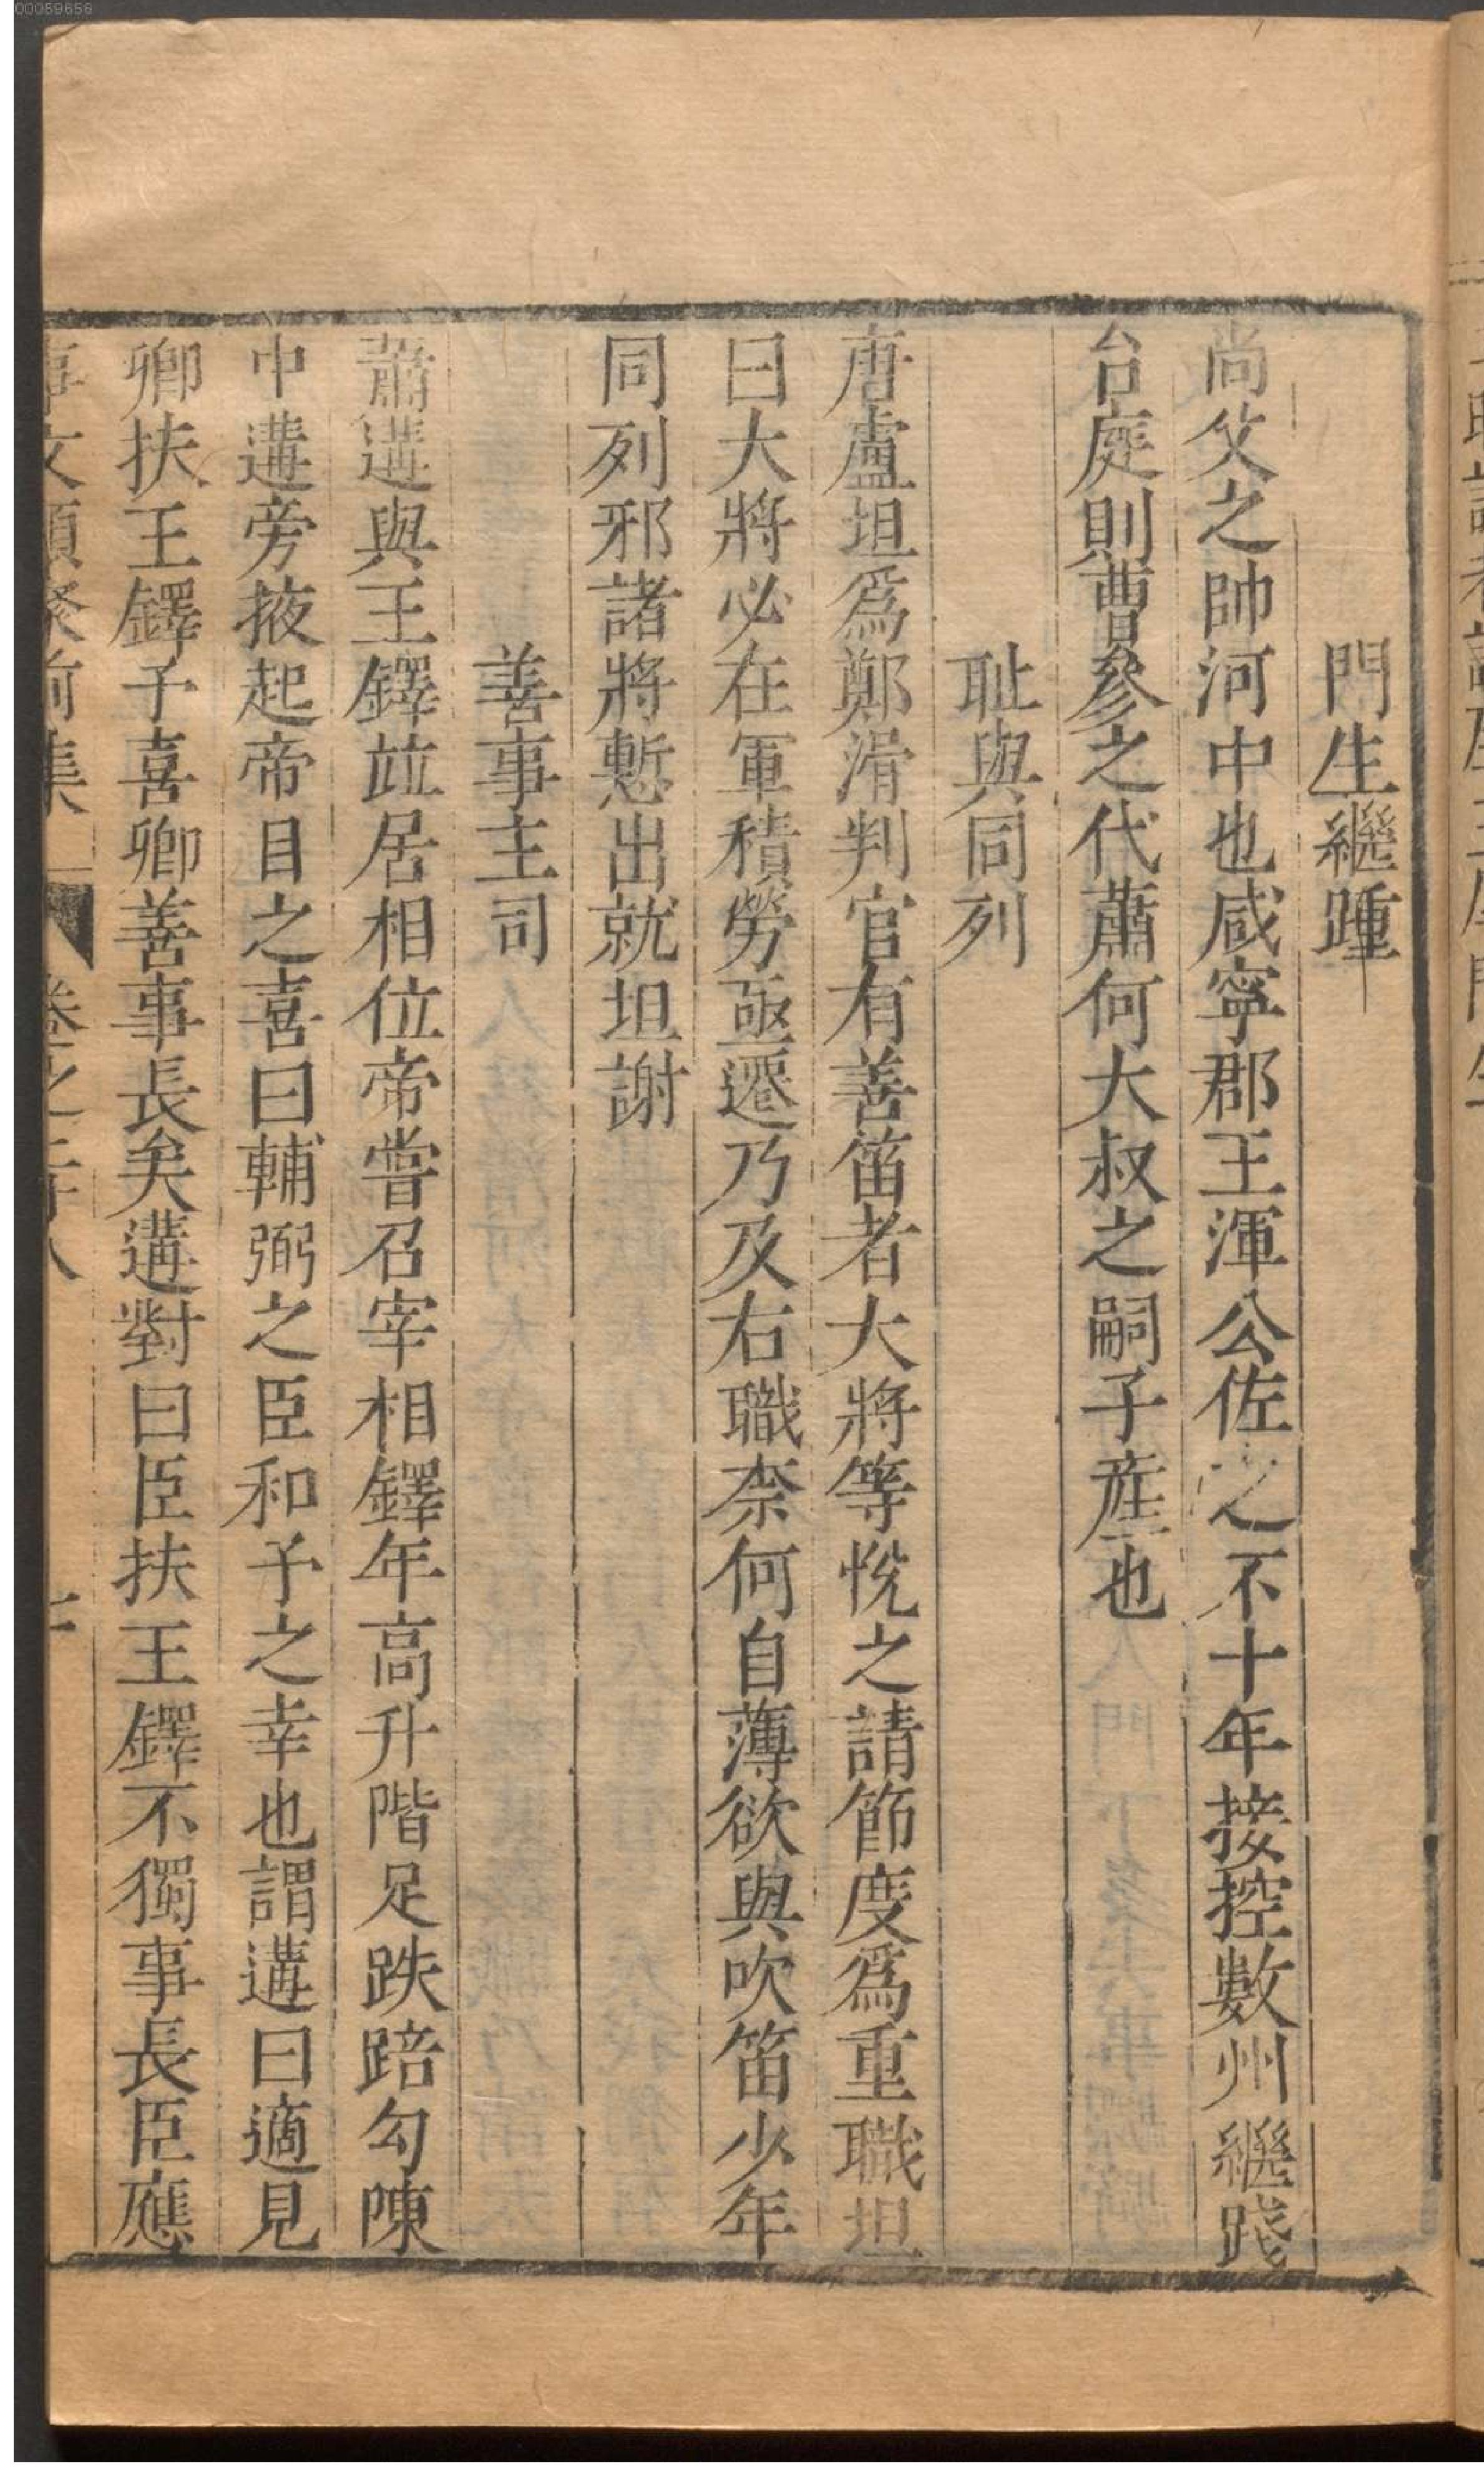 門生繼踵
尚父之帥河中也咸寧郡王渾公佐之不十年接控數州繼踐
台庭則曹參之代蕭何大叔之嗣子産也
耻與同列
唐盧坦爲鄭滑判官有善笛者大將等悅之請節度爲重職坦
曰大將必在軍積勞亟遷乃及右職柰何自薄欲與吹笛少年
同列邪諸將慙出就坦謝
善事主司
蕭遘與王鐸竝居相位帝嘗召宰相鐸年高升階足跌踣勾陳
中遘旁掖起帝目之喜曰輔弼之臣和予之幸也謂遘曰適見
卿扶王鐸予喜卿善事長矣遘對曰臣扶王鐸不獨事長臣應
事文類聚前集
00059656